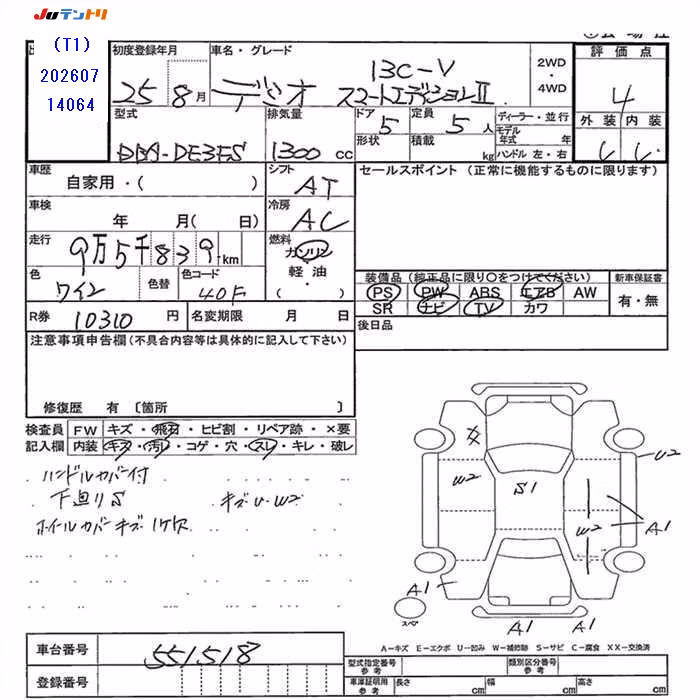 JUテントリ
(T1)
202607
14064
初度登録年月
25 8月
車名・グレード
デミオ
13C-V
スマートエディションⅡ
2WD
・
4WD
評価点
4
外装 内装
型式
DBA-DE3FS
排気量
1300 CC
ドア
5
形状
定員
5 人
積載
kg
ディーラー・並行
モデル年式 年
ハンドル 左・右
車歴
自家用・( )
シフト
AT
セールスポイント (正常に機能するものに限ります)
車検
年 月( 日)
冷房
AC
走行
9万5千839 km
燃料
ガソリン
軽油
( )
色
ワイン
色替
色コード
40F
装備品 (純正品に限り○をつけてください)
PS PW ABS エアB AW
SR ナビ TV カワ
新車保証書
有・無
R券 10310 円
名変期限 月 日
後日品
注意事項申告欄(不具合内容等は具体的に記入して下さい)
修復歴 有 〔箇所 〕
検査員 FW キズ・飛石・ヒビ割・リペア跡・×要
記入欄 内装 キズ・汚レ・コゲ・穴・スレ・キレ・破レ
ハンドルカバー付
下廻りS キズU・W2
ホイールカバーキズ・1ケ欠
X
W2
S1
U2
W2
A1
A1
A1
A1
スペア
A−キズ E−エクボ U−凹み W−補修跡 S−サビ C−腐食 XX−交換済
車台番号 551518
登録番号
型式指定番号
参考
類別区分番号
参考
車庫証明用
参考
長さ cm 幅 cm 高さ cm